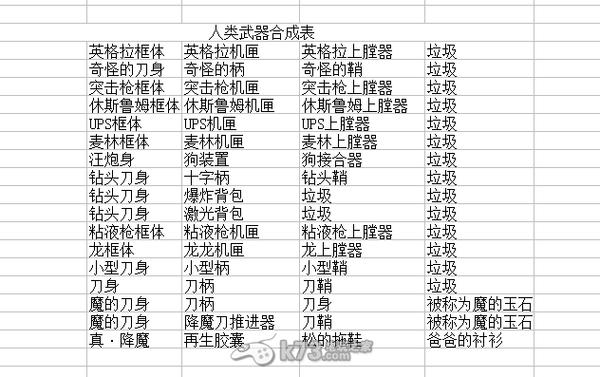 人类武器合成表
英格拉框体 英格拉机匣 英格拉上膛器 垃圾
奇怪的刀身 奇怪的柄 奇怪的鞘 垃圾
突击枪框体 突击枪机匣 突击枪上膛器 垃圾
休斯鲁姆框体 休斯鲁姆机匣 休斯鲁姆上膛器 垃圾
UPS框体 UPS机匣 UPS上膛器 垃圾
麦林框体 麦林机匣 麦林上膛器 垃圾
汪炮身 狗装置 狗接合器 垃圾
钻头刀身 十字柄 钻头鞘 垃圾
钻头刀身 爆炸背包 垃圾 垃圾
钻头刀身 激光背包 垃圾 垃圾
粘液枪框体 粘液枪机匣 粘液枪上膛器 垃圾
龙框体 龙龙机匣 龙上膛器 垃圾
小型刀身 小型柄 小型鞘 垃圾
刀身 刀柄 刀鞘 垃圾
魔的刀身 刀柄 刀身 被称为魔的玉石
魔的刀身 降魔刀推进器 刀鞘 被称为魔的玉石
真·降魔 再生胶囊 松的拖鞋 爸爸的衬衫
k73.com